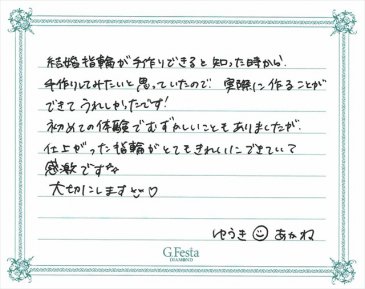 結婚指輪が手作りできると知った時から、
手作りしてみたいと思っていたので 実際に作ることが
できてうれしかったです!
初めての体験でむずかしいこともありましたが、
仕上がった指輪がとてもきれいにできていて
感激です
大切にします♡
ゆうき☺あかね
G.Festa
DIAMOND